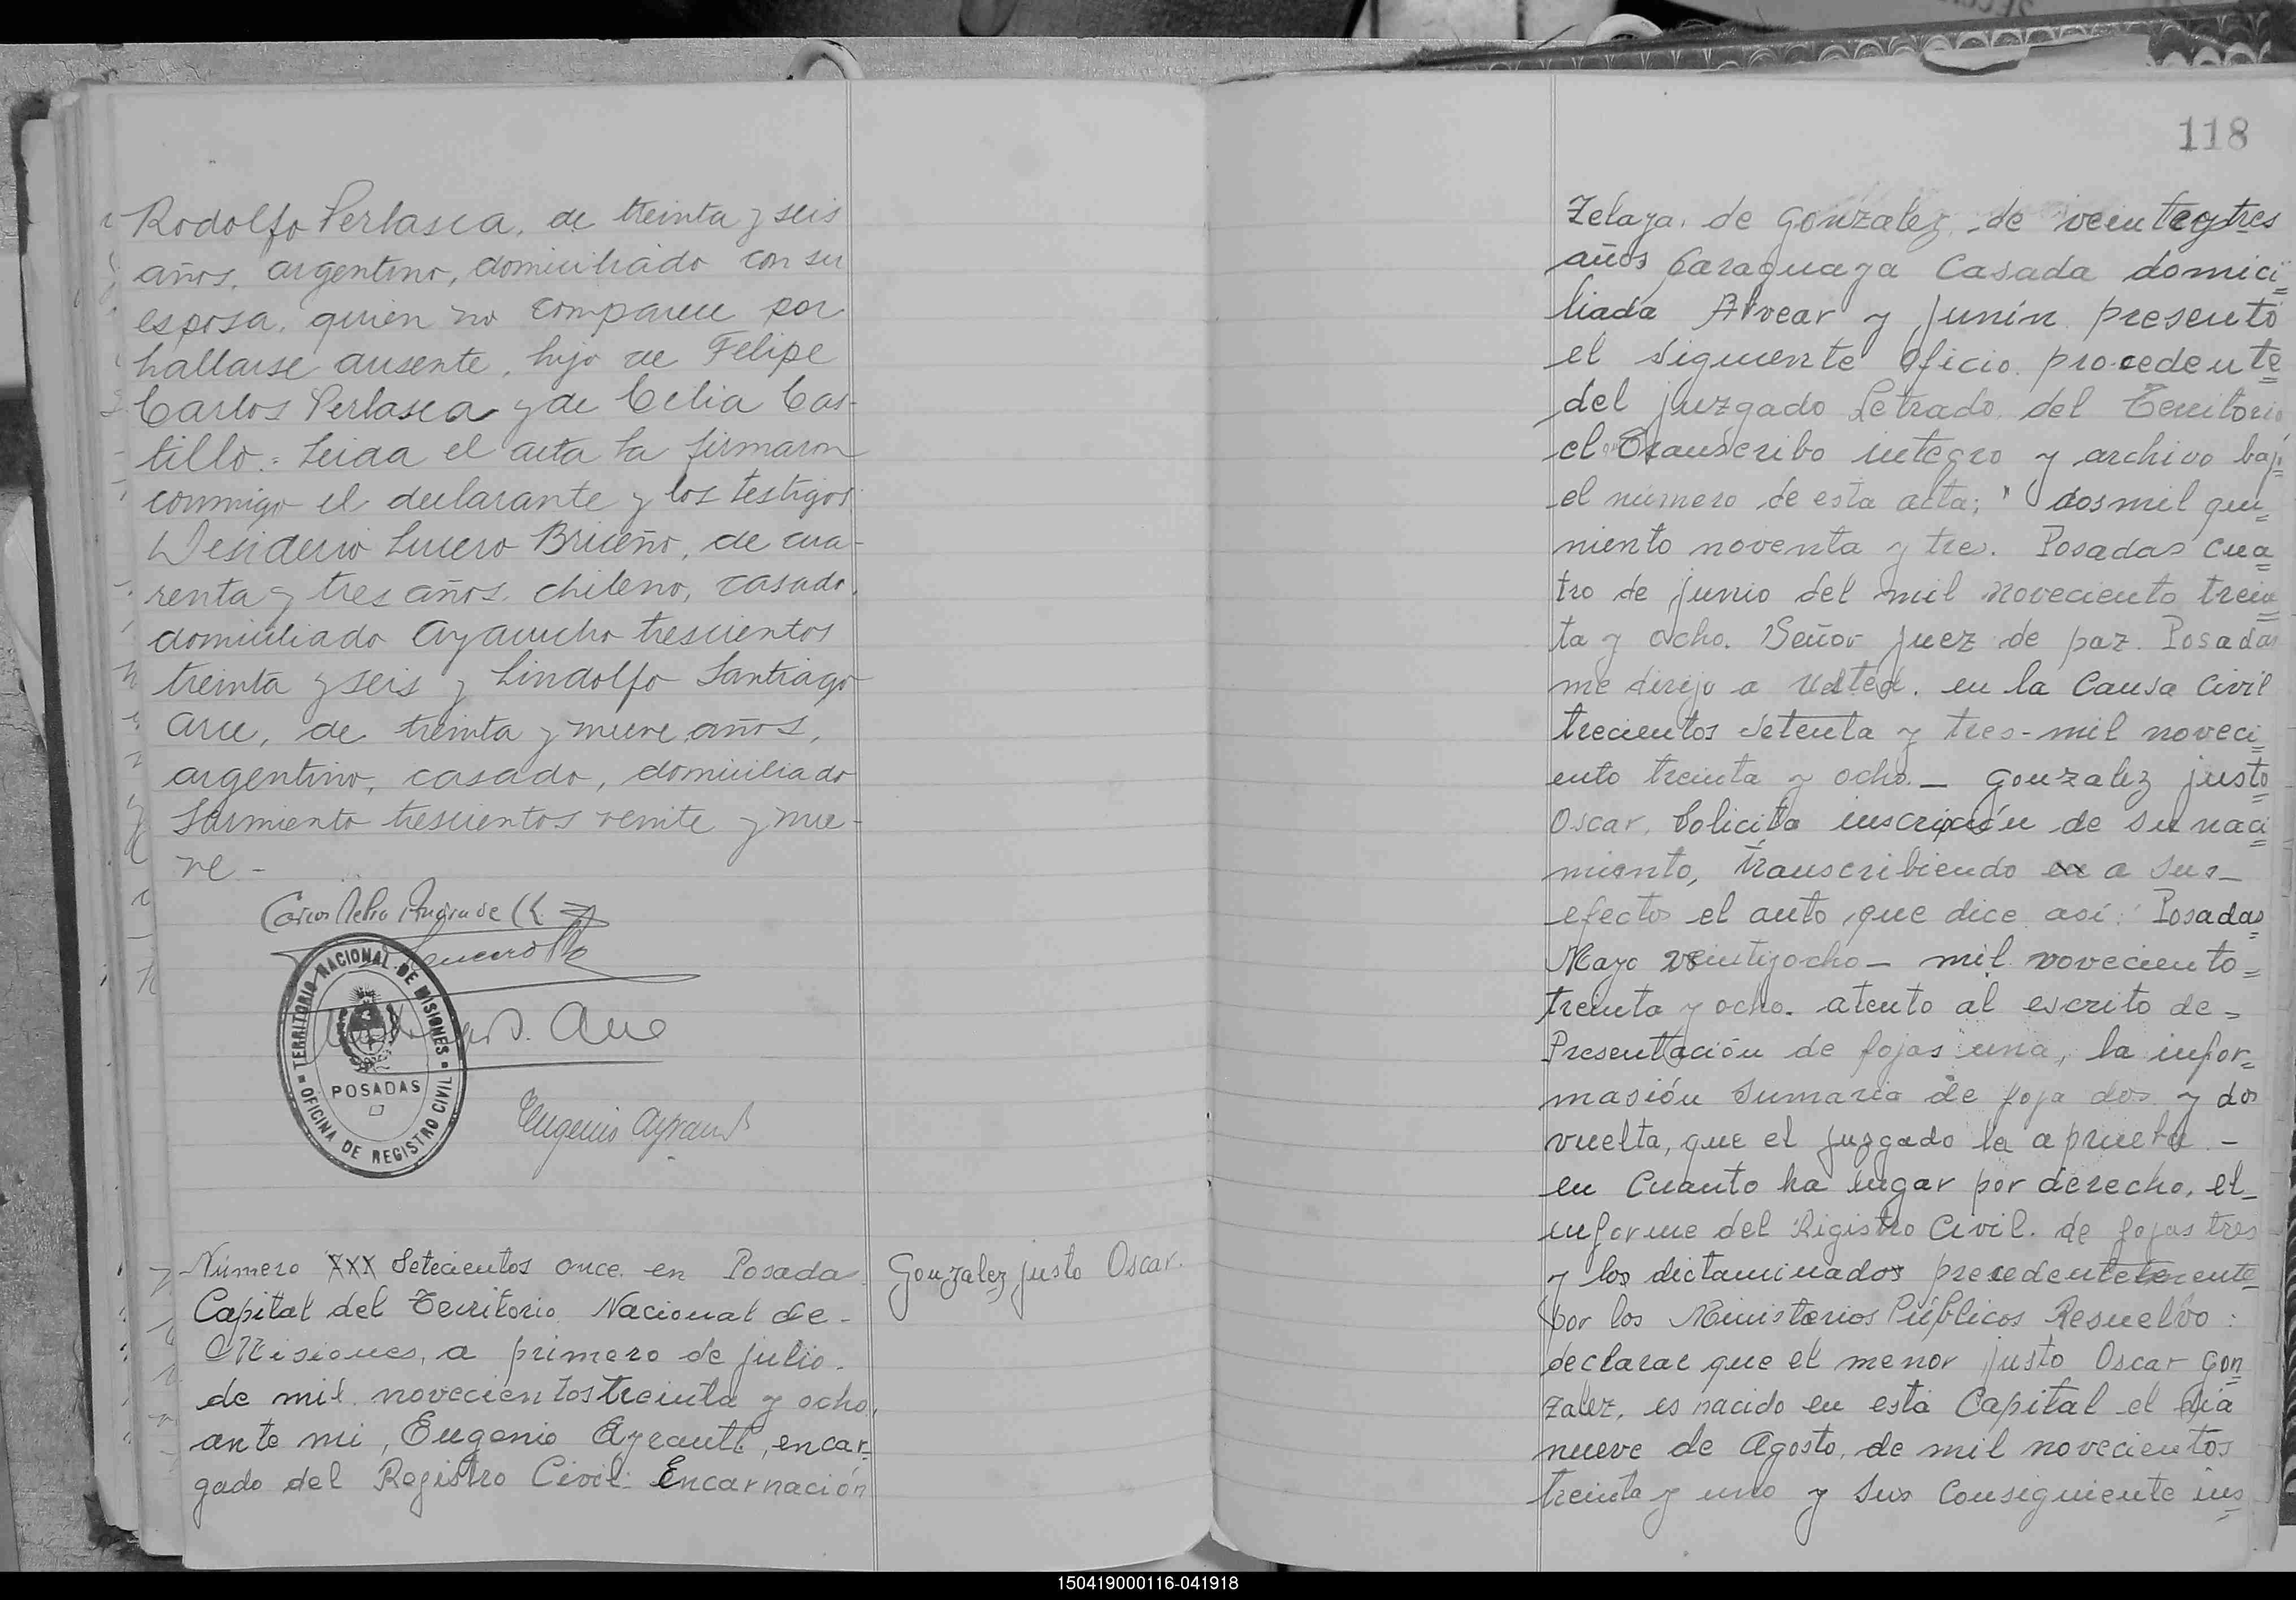 Rodolfo Perlasca, de treinta y seis
años, argentino, domiciliado con su
esposa, quien no comparece por
hallarse ausente, hijo de Felipe
Carlos Perlasca y de Celia Cas-
tillo.= Leida el acta la firmaron
conmigo el declarante y los testigos
Desiderio Lucero Briceño, de cua-
renta y tres años, chileno, casado,
domiciliado Ayacucho trescientos
treinta y seis y Lindolfo Santiago
Arce, de treinta y nueve años,
argentino, casado, domiciliado
Sarmiento trescientos veinte y nue-
ve -
TERRITORIO NACIONAL DE MISIONES
POSADAS
OFICINA DE REGISTRO CIVIL
Número XXX Setecientos once. en Posada
Capital del Territorio Nacional de-
Misiones, a primero de julio-
de mil novecientos treinta y ocho,
ante mi, Eugenio Ayrault, encar=
gado del Registro Civil. Encarnación
Gonzalez justo Oscar.
118
Zelaya. de Gonzalez, de veinteytres
años Paraguaya Casada domici=
liada Alvear y Junín presentó
el siguiente Oficio procedente
del juzgado Letrado del Territorio
el que Transcribo integro y archivo bajo
el número de esta acta; " dosmil qui=
niento noventa y tres. Posadas Cua=
tro de junio del mil noveciento trein=
ta y ocho. Señor juez de paz. Posadas
me dirijo a Usted. en la Causa Civil
trecientos setenta y tres-mil noveci=
ento treinta y ocho._ Gonzalez justo
Oscar, Solicita inscripción de su naci=
miento, transcribiendo en a sus_
efectos el auto que dice así: Posadas
Mayo veintiyocho_ mil noveciento=
treinta y ocho. atento al escrito de=
Presentación de fojas una, la infor=
masión Sumaria de foja dos y dos
vuelta, que el juzgado la aprueba -
en Cuanto ha lugar por derecho, el_
informe del Rigistro Civil. de fojas tres
y los dictaminados precedentetemente
por los Ministerios Públicos Resuelvo:
declarar que el menor justo Oscar Gon=
zalez, es nacido en esta Capital el día
nueve de Agosto, de mil novecientos
treinta y uno y sus Consiguiente ins=
150419000116-041918